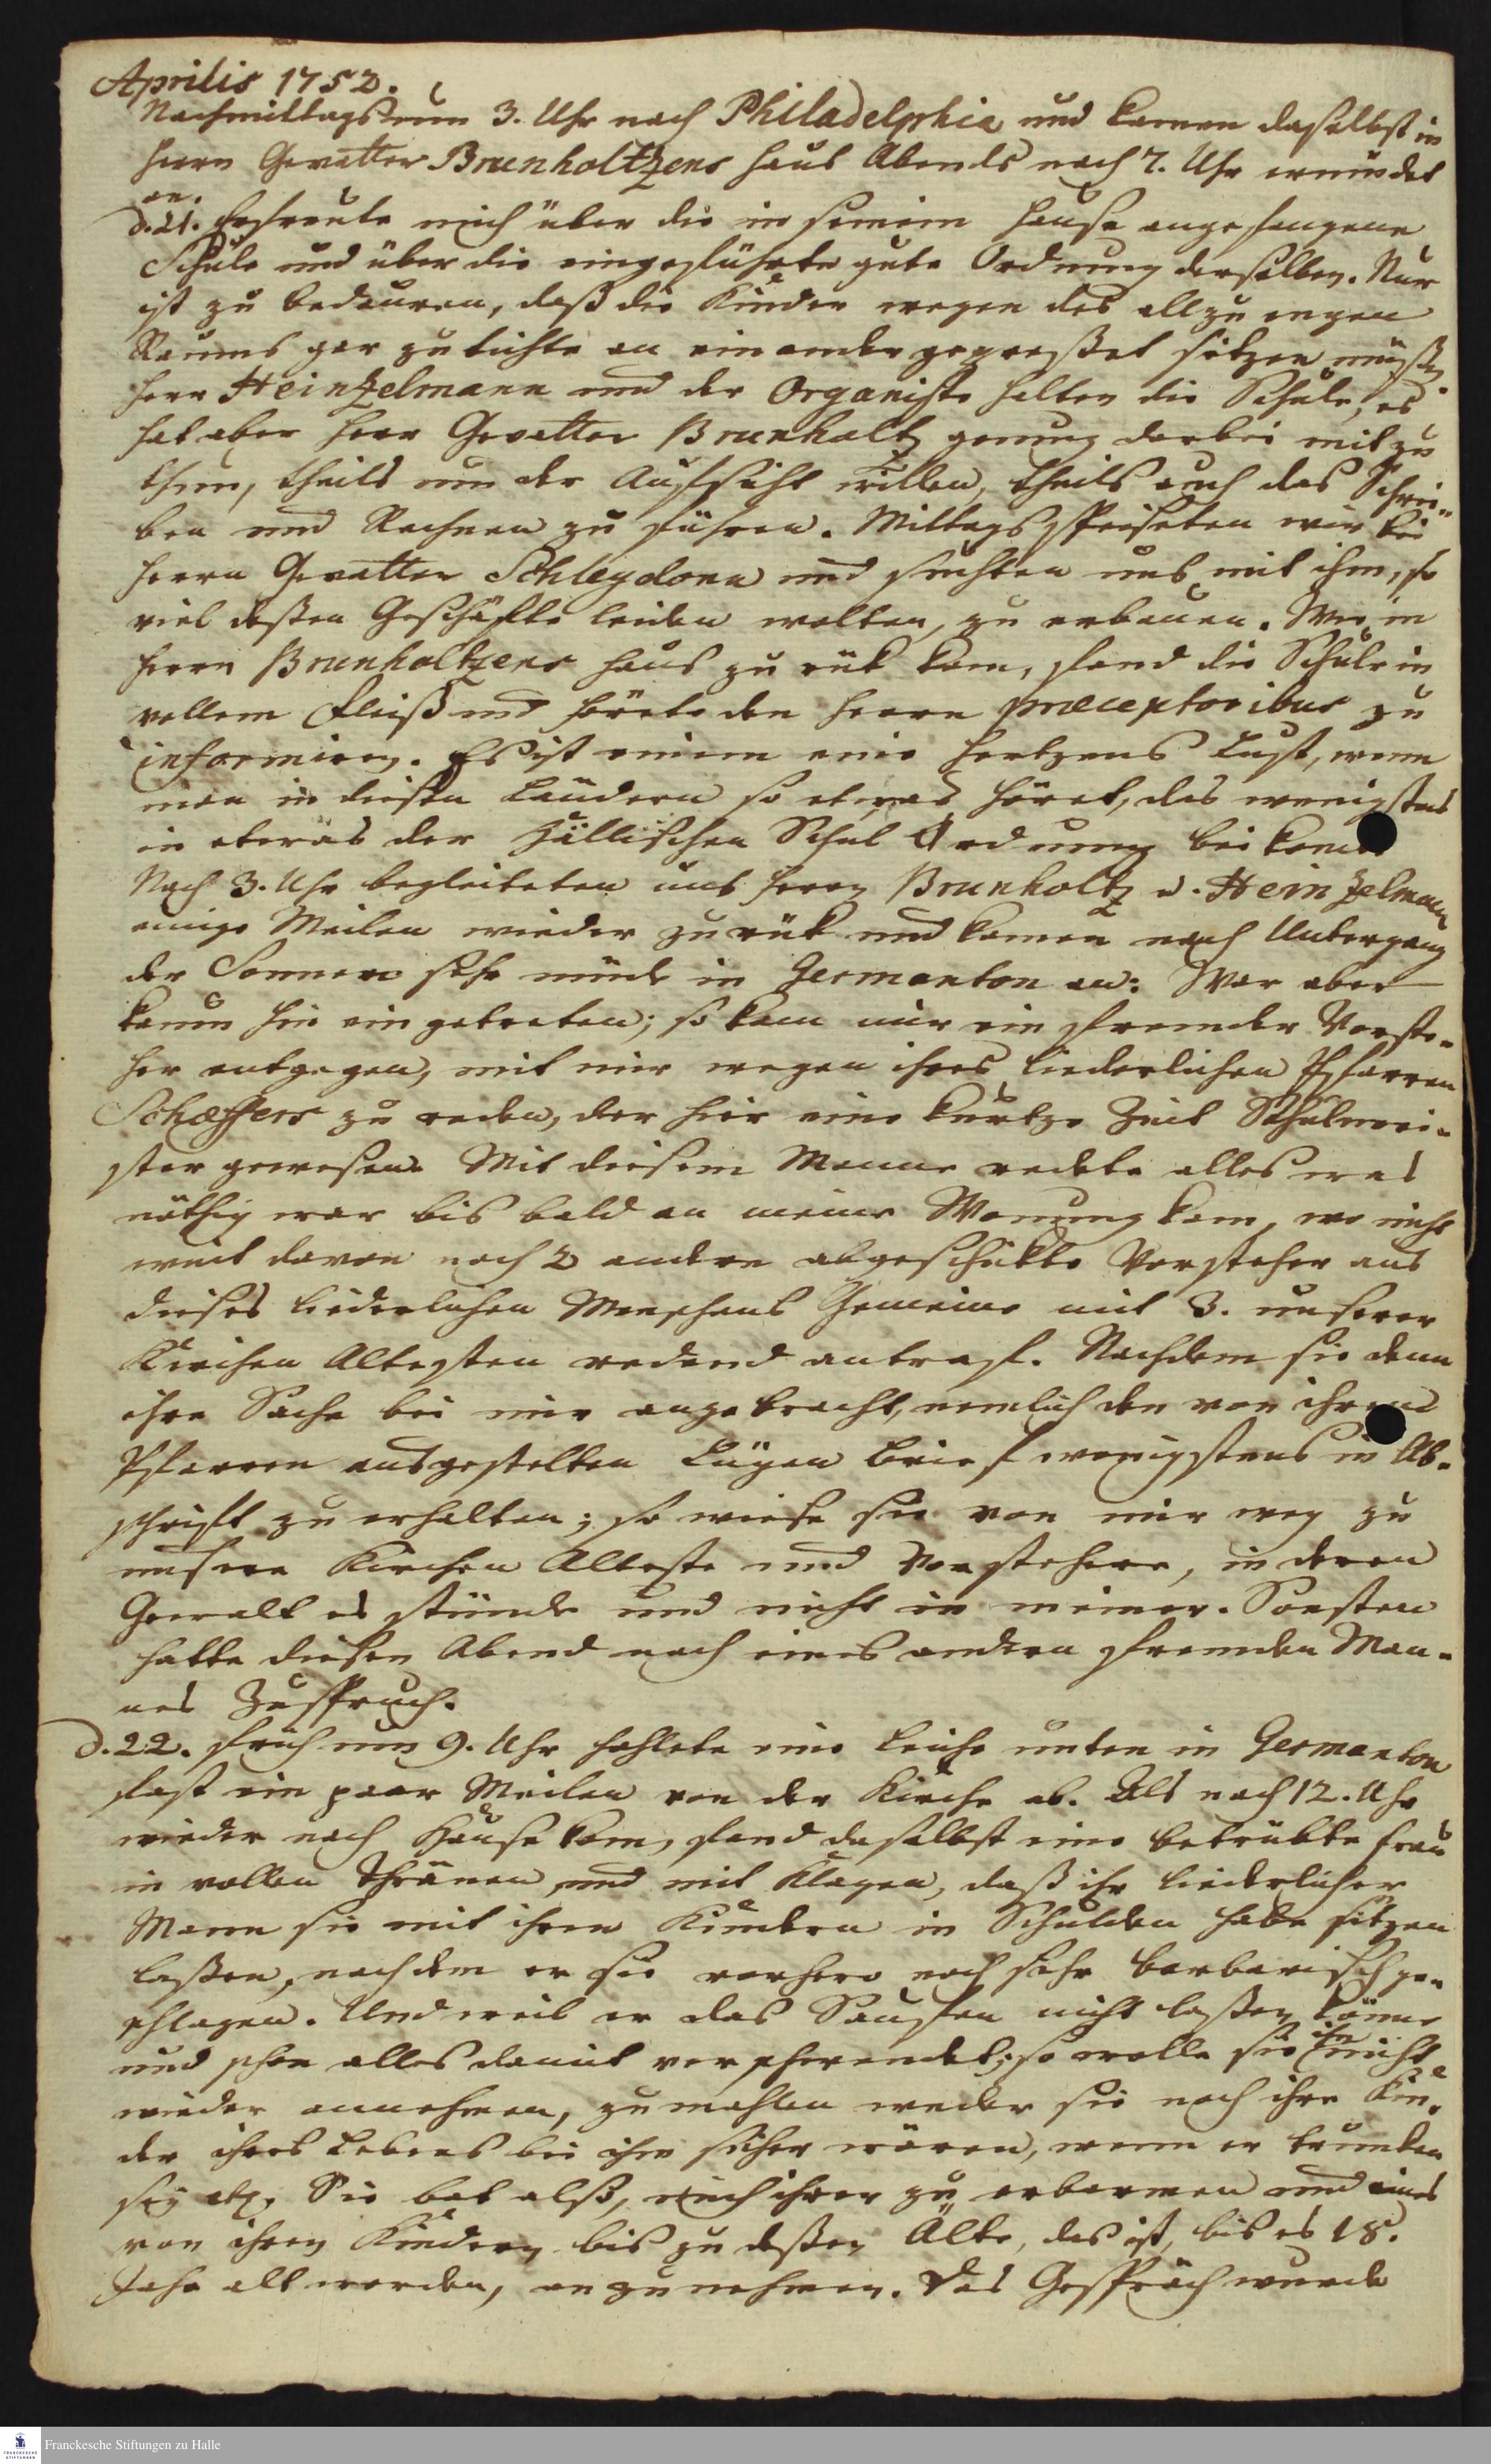 Aprilis 1752.
Nachmittags um 3. Uhr nach Philadelphia und kamen daselbst in
Herrn Gevatter Brunholtzens Haus Abends nach 7. Uhr ermüdet
an.
d. 21. Erfreute mich über die in seinem Hause angefangene
Schule und über die eingeführte gute Ordnung derselben. Nur
ist zu bedauren, daß die Kinder wegen des allzu engen
Raums gar zu dichte an einander gepreßet sitzen müßen.
Herr Heintzelmann und der Organiste halten die Schule, es
hat aber Herr Gevatter Brunholtz genung darbei mit zu
thun, theils um der Aufsicht willen, theils auch das Schrei-
ben und Rechnen zu führen. Mittags speiseten wir bei
Herrn Gevatter Schleydorn und suchten uns mit ihm, so
viel deßen Geschäfte leiden wolten, zu erbauen. Wie in
Herrn Brunholtzens Haus zurük kam, fand die Schule in
vollem Fleiß und hörete den Herrn praeceptoribus zu
informiren. Es ist einem eine Hertzens Lust, wenn
man in diesen Ländern so etwas höret, das wenigstens
in etwas der Hällischen Schul Ordnung bei komt
Nach 3. Uhr begleiteten uns Herrn Brunholtz u. Heintzelmann
einige Meilen wieder zurük und kamen nach Untergang
der Sonnen sehr müde in Germanton an: War aber
kaum hin ein getreten; so kam mir ein fremder Vorste-
her entgegen, mit mir wegen ihres liederlichen Pfarren
Schæffers zu reden, der hier eine kurtze Zeit Schulmei-
ster gewesen. Mit diesem Manne redete alles was
nöthig war bis bald an meine Wonung kam, wo nicht
weit davon noch 2 andere abgeschikte Vorsteher aus
dieses liederlichen Menschens Gemeine mit 3. unserer
Kirchen Altesten redend antraf. Nachdem sie denn
ihre Sache bei mir angebracht, nemlich den von ihrem
Pfarren ausgestelten Lügen brief wenigstens in Ab-
schrift zu erhalten; so wiese sie von mir weg zu
unsere Kirchen Alteste und Vorstehere, in deren
Gewalt es stünde und nicht in meiner. Sonsten
hatte diesen Abend noch eines andern fremden Man-
nes Zuspruch.
d. 22. früh um 9. Uhr hohlete eine Leiche unten in Germanton
fast ein paar Meilen von der Kirche ab. Als nach 12. Uhr
wieder nach Hause kam, fand daselbst eine betrübte Frau
in vollen Thränen und mit Klagen, daß ihr liederlicher
Mann sie mit ihren Kindern in Schulden habe sitzen
laßen, nachdem er sie vorhero noch sehr barbarisch ge-
schlagen. Und weil er das Sauffen nicht laßen könne
und schon alles damit verschwendet; so wolle sie ihn nicht
wieder annehmen, zumahlen weder sie noch ihre Kin-
der ihres Lebens bei ihm sicher wären, wenn er trunken
sey etc. Sie bat also, mich ihrer zu erbarmen und eines
von ihren Kindern bis zu deßen Alte, das ist, bis es 18.
Jahr alt worden, anzunehmen. Das Gespräch wurde
Franckesche Stiftungen zu Halle